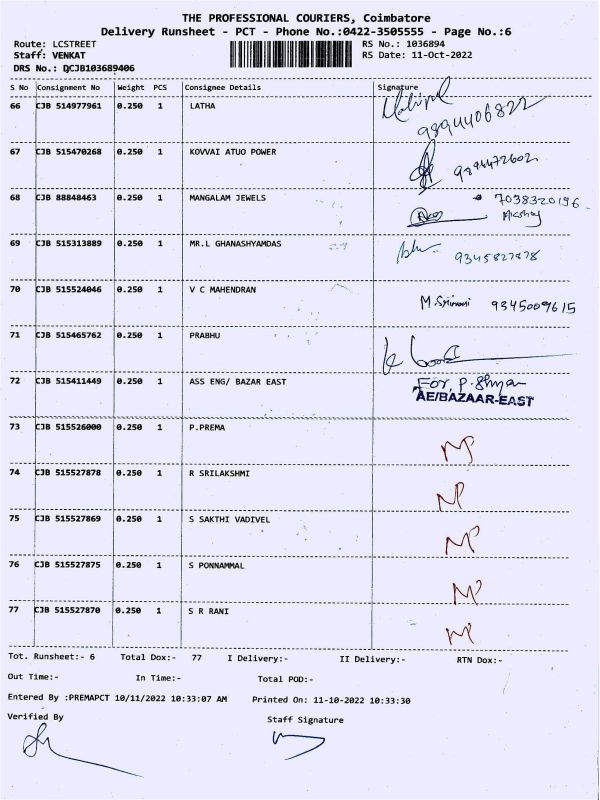 THE PROFESSIONAL COURIERS, Coimbatore
Delivery Runsheet - PCT - Phone No.:0422-3505555 - Page No.:6
Route: LCSTREET RS No.: 1036894
Staff: VENKAT RS Date: 11-Oct-2022
DRS No.: DCJB103689406
S No Consignment No Weight PCS Consignee Details Signature
66 CJB 514977961 0.250 1 LATHA
9894406822
67 CJB 515470268 0.250 1 KOVVAI ATUO POWER
9894472602
68 CJB 88848463 0.250 1 MANGALAM JEWELS 7038320196
Akshay
69 CJB 515313889 0.250 1 MR.L GHANASHYAMDAS
9345827878
70 CJB 515524046 0.250 1 V C MAHENDRAN
9345009615
71 CJB 515465762 0.250 1 PRABHU
72 CJB 515411449 0.250 1 ASS ENG/ BAZAR EAST For, P.
AE/BAZAAR-EAST
73 CJB 515526000 0.250 1 P.PREMA
NP
74 CJB 515527878 0.250 1 R SRILAKSHMI
NP
75 CJB 515527869 0.250 1 S SAKTHI VADIVEL
NP
76 CJB 515527875 0.250 1 S PONNAMMAL
NP
77 CJB 515527870 0.250 1 S R RANI
NP
Tot. Runsheet:- 6 Total Dox:- 77 I Delivery:- II Delivery:- RTN Dox:-
Out Time:- In Time:- Total POD:-
Entered By :PREMAPCT 10/11/2022 10:33:07 AM Printed On: 11-10-2022 10:33:30
Verified By Staff Signature